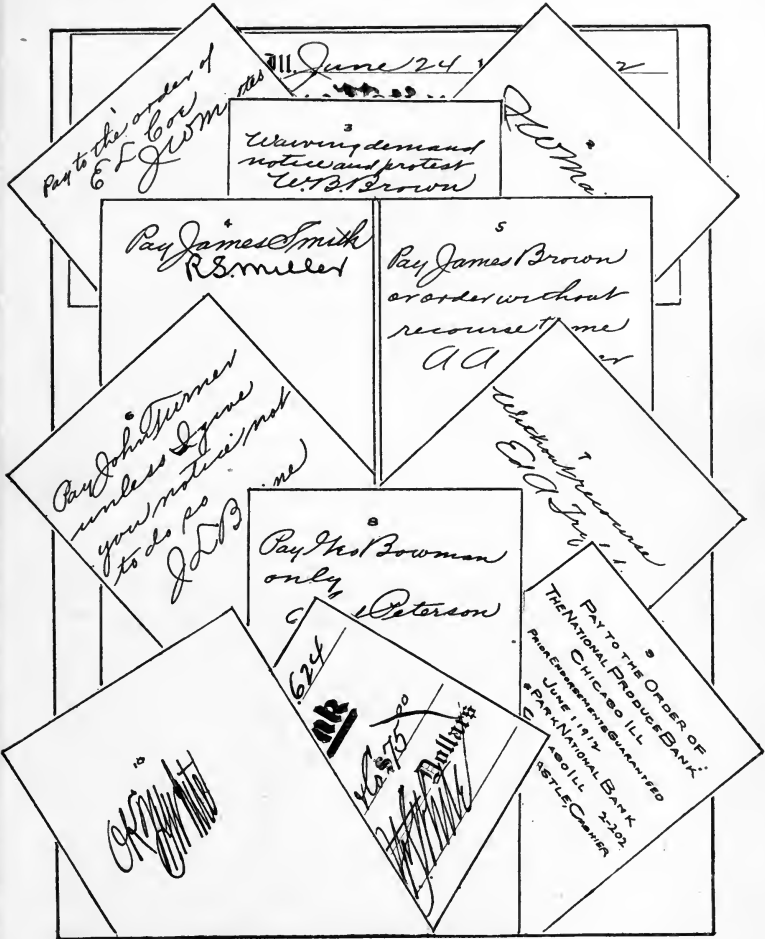 Ill. June 24 1 2
1
Pay to the order of
E L Coe
J W M tes
2
J W Ma
3
Waiving demand
notice and protest
W. B. Brown
4
Pay James Smith
R. S. Miller
5
Pay James Brown
or order without
recourse t me
A A
6
Pay John Turner
unless I give
you notice not
to do so
J L B ne
7
Without recourse
Ed A
8
Pay Geo Bowman
only
e Peterson
9
PAY TO THE ORDER OF
THE NATIONAL PRODUCE BANK
CHICAGO ILL
PRIOR ENDORSEMENTS GUARANTEED
JUNE 1 1912
PARK NATIONAL BANK
C AGO ILL 2-202
ASTLE, CASHIER
10
OK
624
nk
$75 00
Dollars